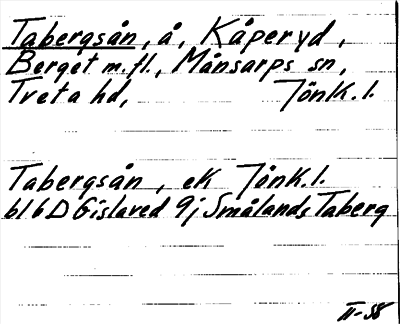 Tabergsån, å, Kåperyd,
Berget m.fl., Månsarps sn,
Tveta hd, Jönk.l.
Tabergsån, ek Jönk.l.
bl 6D Gislaved 9j Smålands Taberg
II-58